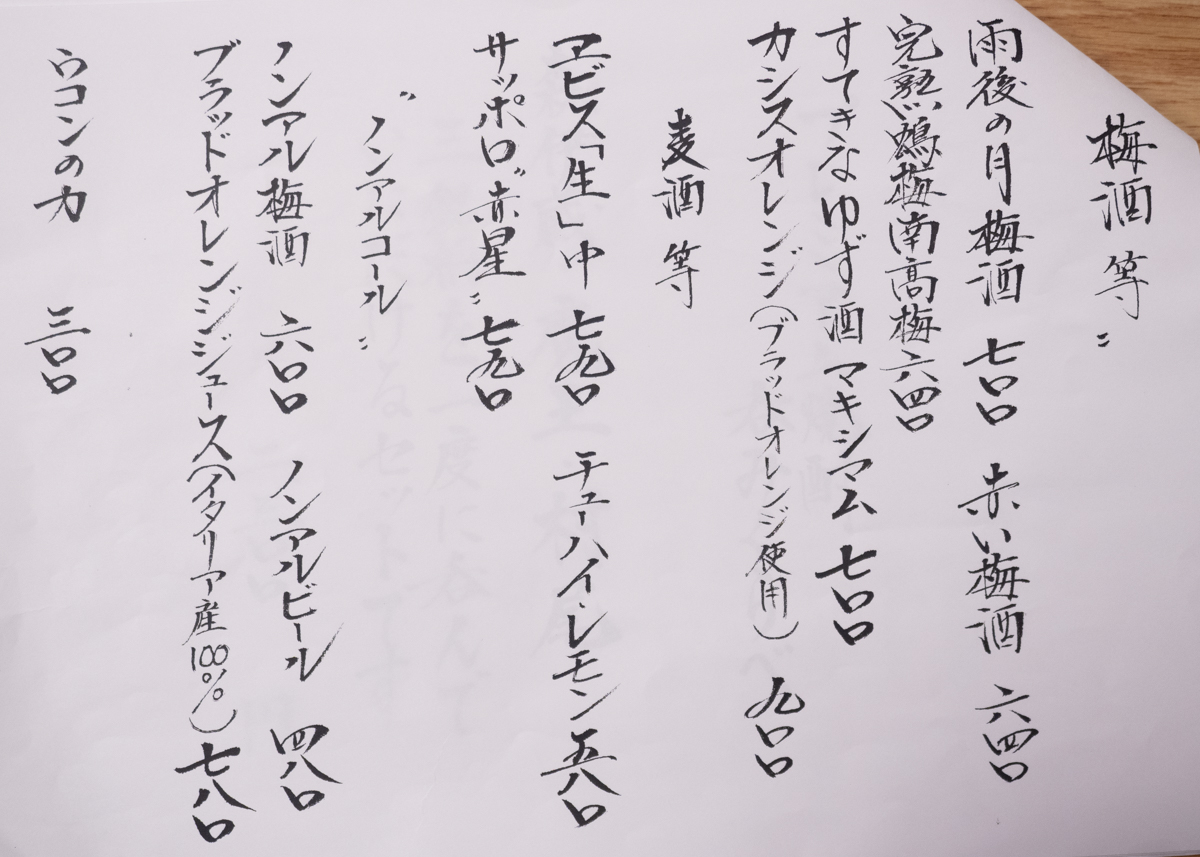 梅酒 等〃
雨後の月 梅酒 七〇〇 赤い梅酒 六四〇
完熟鶴梅南高梅 六四〇
すてきなゆず酒 マキシマム 七〇〇
カシスオレンジ(ブラッドオレンジ使用) 九〇〇
麦酒 等
ヱビス「生」中 七九〇 チューハイ・レモン 五八〇
サッポロ〝赤星〟 七九〇
〝ノンアルコール〟
ノンアル梅酒 六〇〇 ノンアルビール 四八〇
ブラッドオレンジジュース(イタリア産100%) 七八〇
ウコンの力 三〇〇